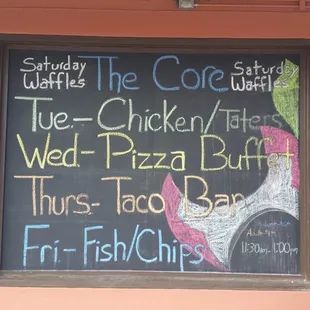 Saturday Waffles The Core Saturday Waffles
Tue.- Chicken/Taters
Wed.- Pizza Buffet
Thurs- Taco Bar
Fri- Fish/Chips
11:30am-1:00pm